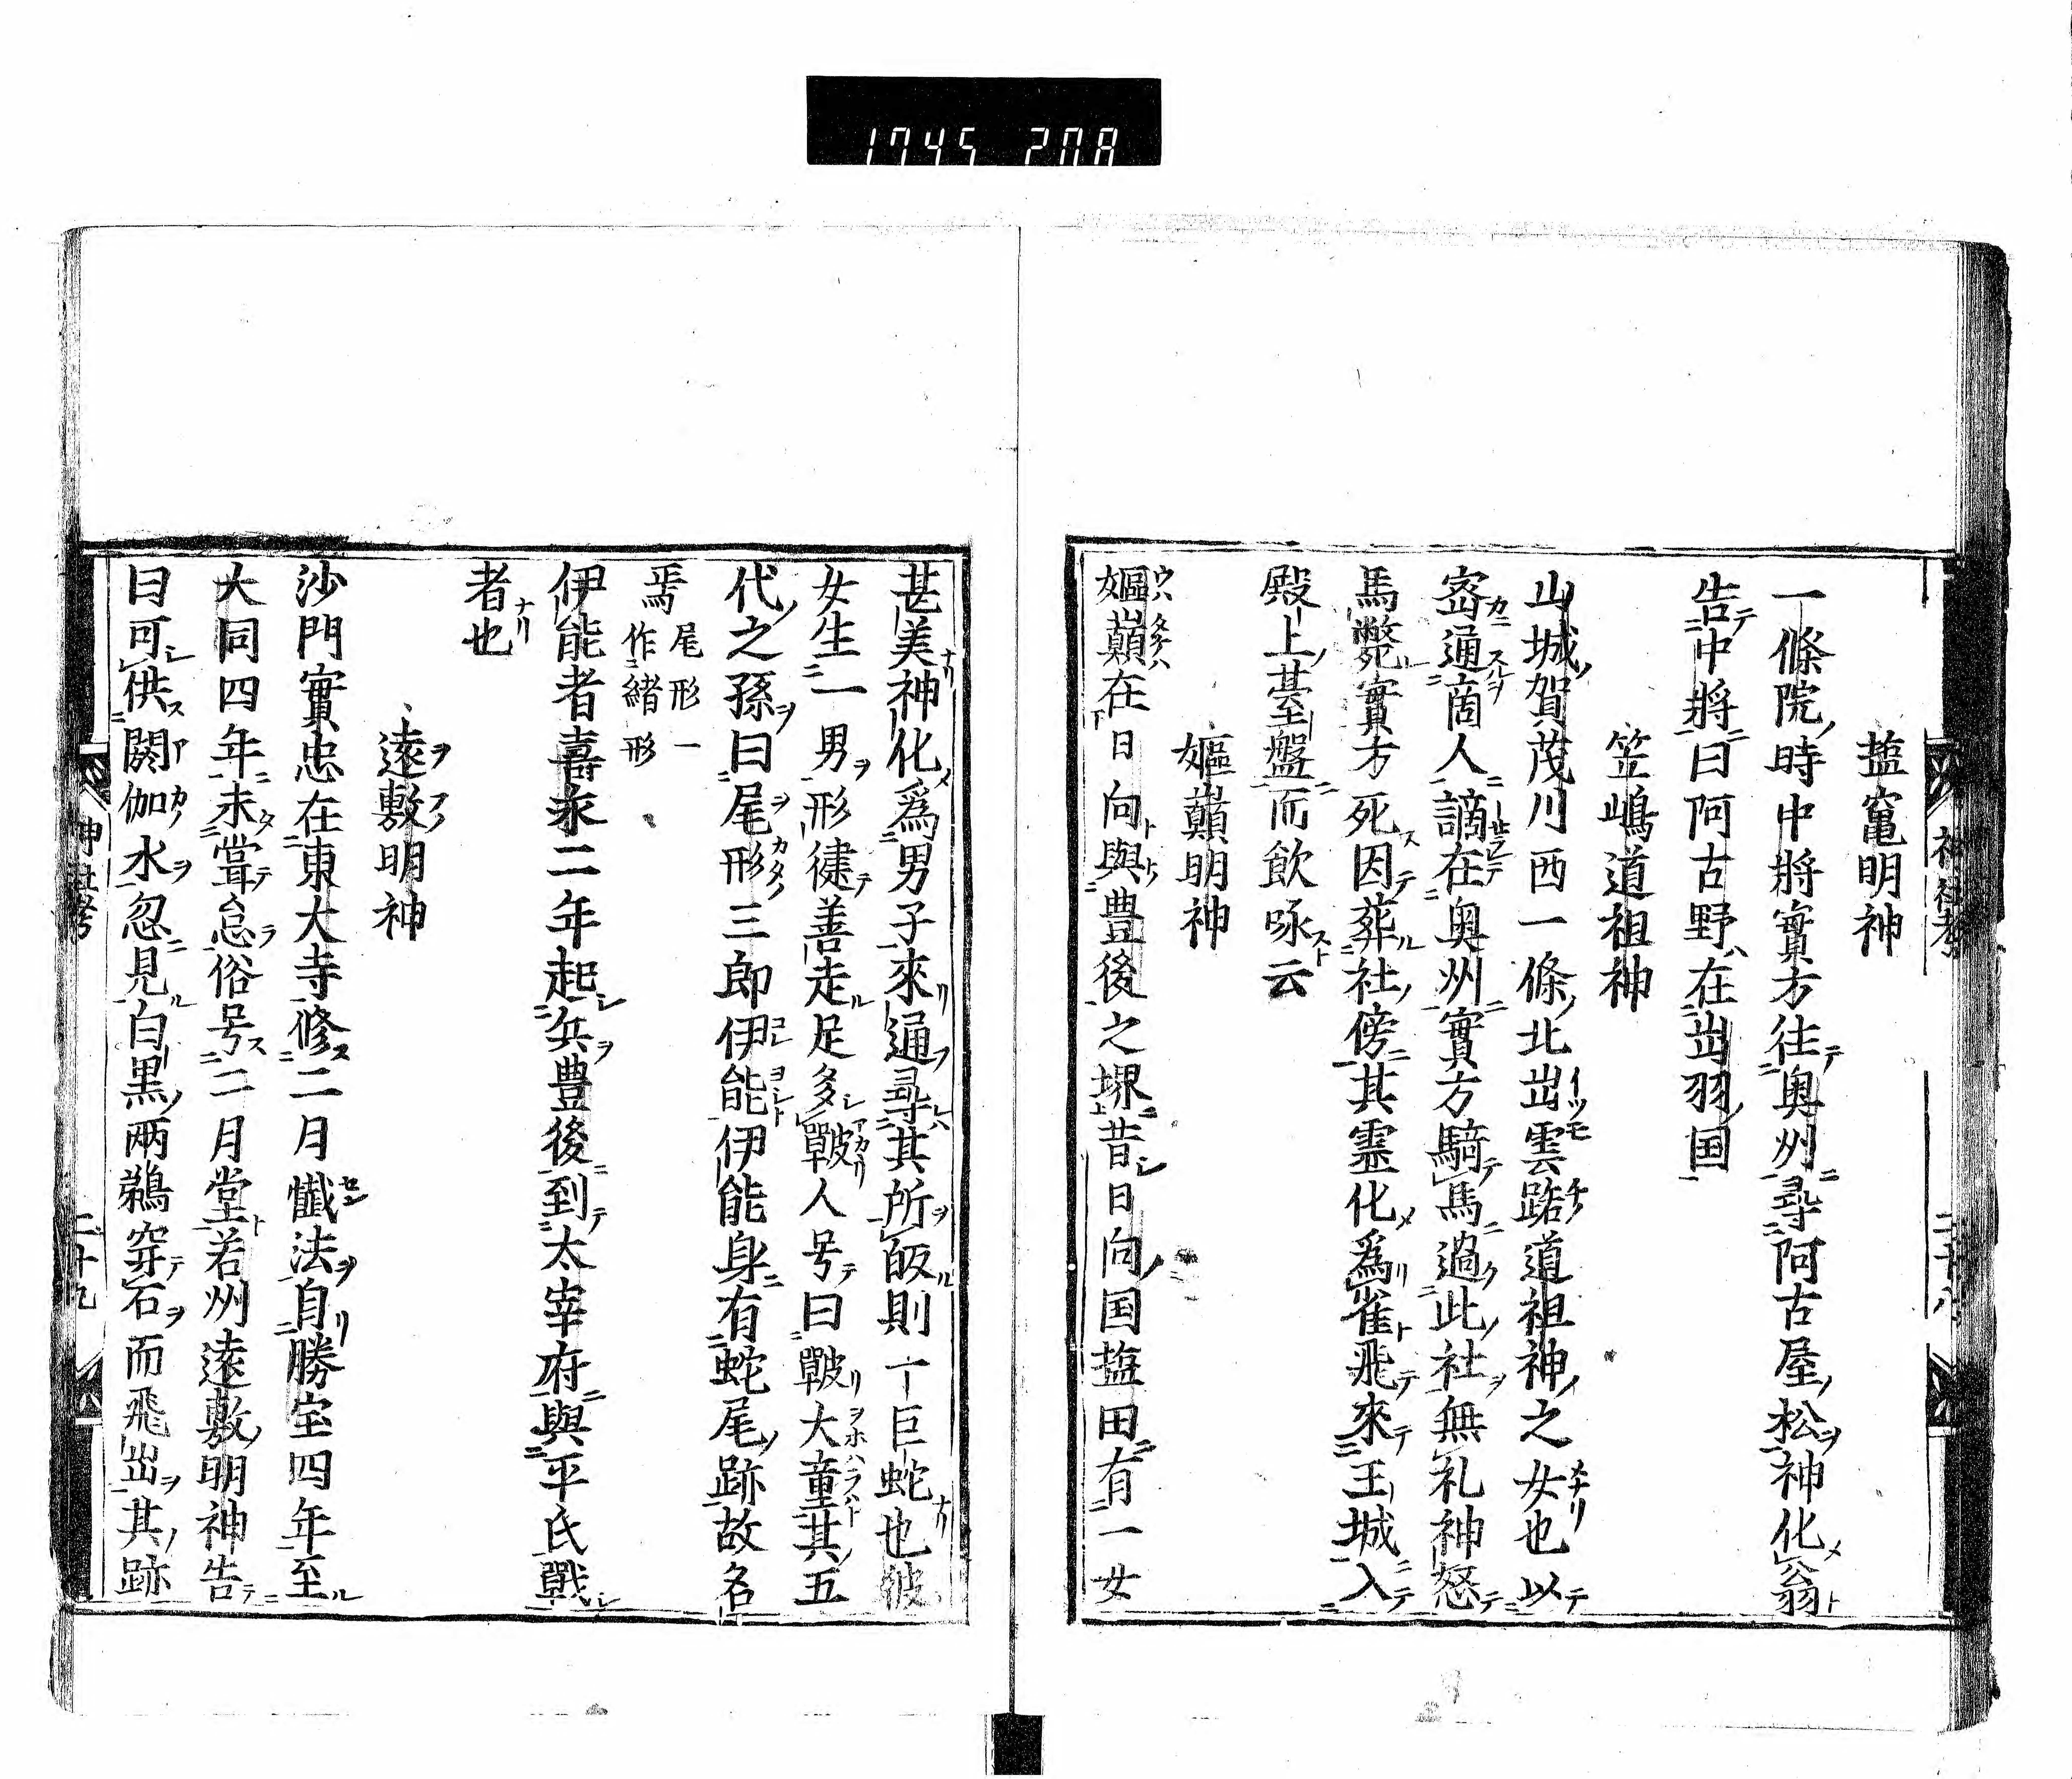 1745 27A
神社考
二十八
塩竃明神
一條院時中將實方往奥州尋阿古屋松神化翁
告中將曰阿古野在出羽国
笠嶋道祖神
山城賀茂川西一條北出雲路道祖神之女也以
密通商人謫在奥州實方騎馬過此社無礼神怒
馬斃實方死因葬社傍其霊化爲雀飛來王城入
殿上䑓盤而飲啄云
嫗巔明神
嫗巔在日向與豊後之堺昔日向国塩田有一女
甚美神化爲男子來通尋其所皈則一巨蛇也彼
女生一男形健善走足多皸人号曰皸大童其五
代之孫曰尾形三郎伊能伊能身有蛇尾跡故名
焉 尾形一作緒形
伊能者喜永二年起兵豊後到太宰府與平氏戰
者也
遠敷明神
沙門實忠在東大寺修二月懺法自勝宝四年至
大同四年未甞怠俗号二月堂若州遠敷明神告
曰可供閼伽水忽見白黒兩鵜穿石而飛出其跡
神社考
二十九